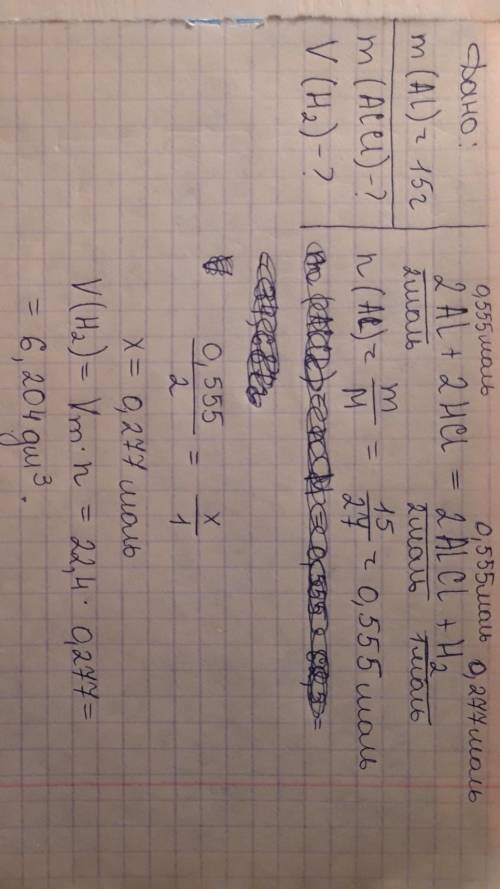 Дано:
m(Al) = 15г
m(AlCl) - ?
V(H₂) - ?
0,555моль 0,555моль 0,277моль
2Al + 2HCl = 2AlCl + H₂
2моль 2моль 1моль
n(Al) = m/M = 15/27 = 0,555моль
0,555/2 = x/1
x = 0,277моль
V(H₂) = Vm · n = 22,4 · 0,277 =
= 6,204дм³.